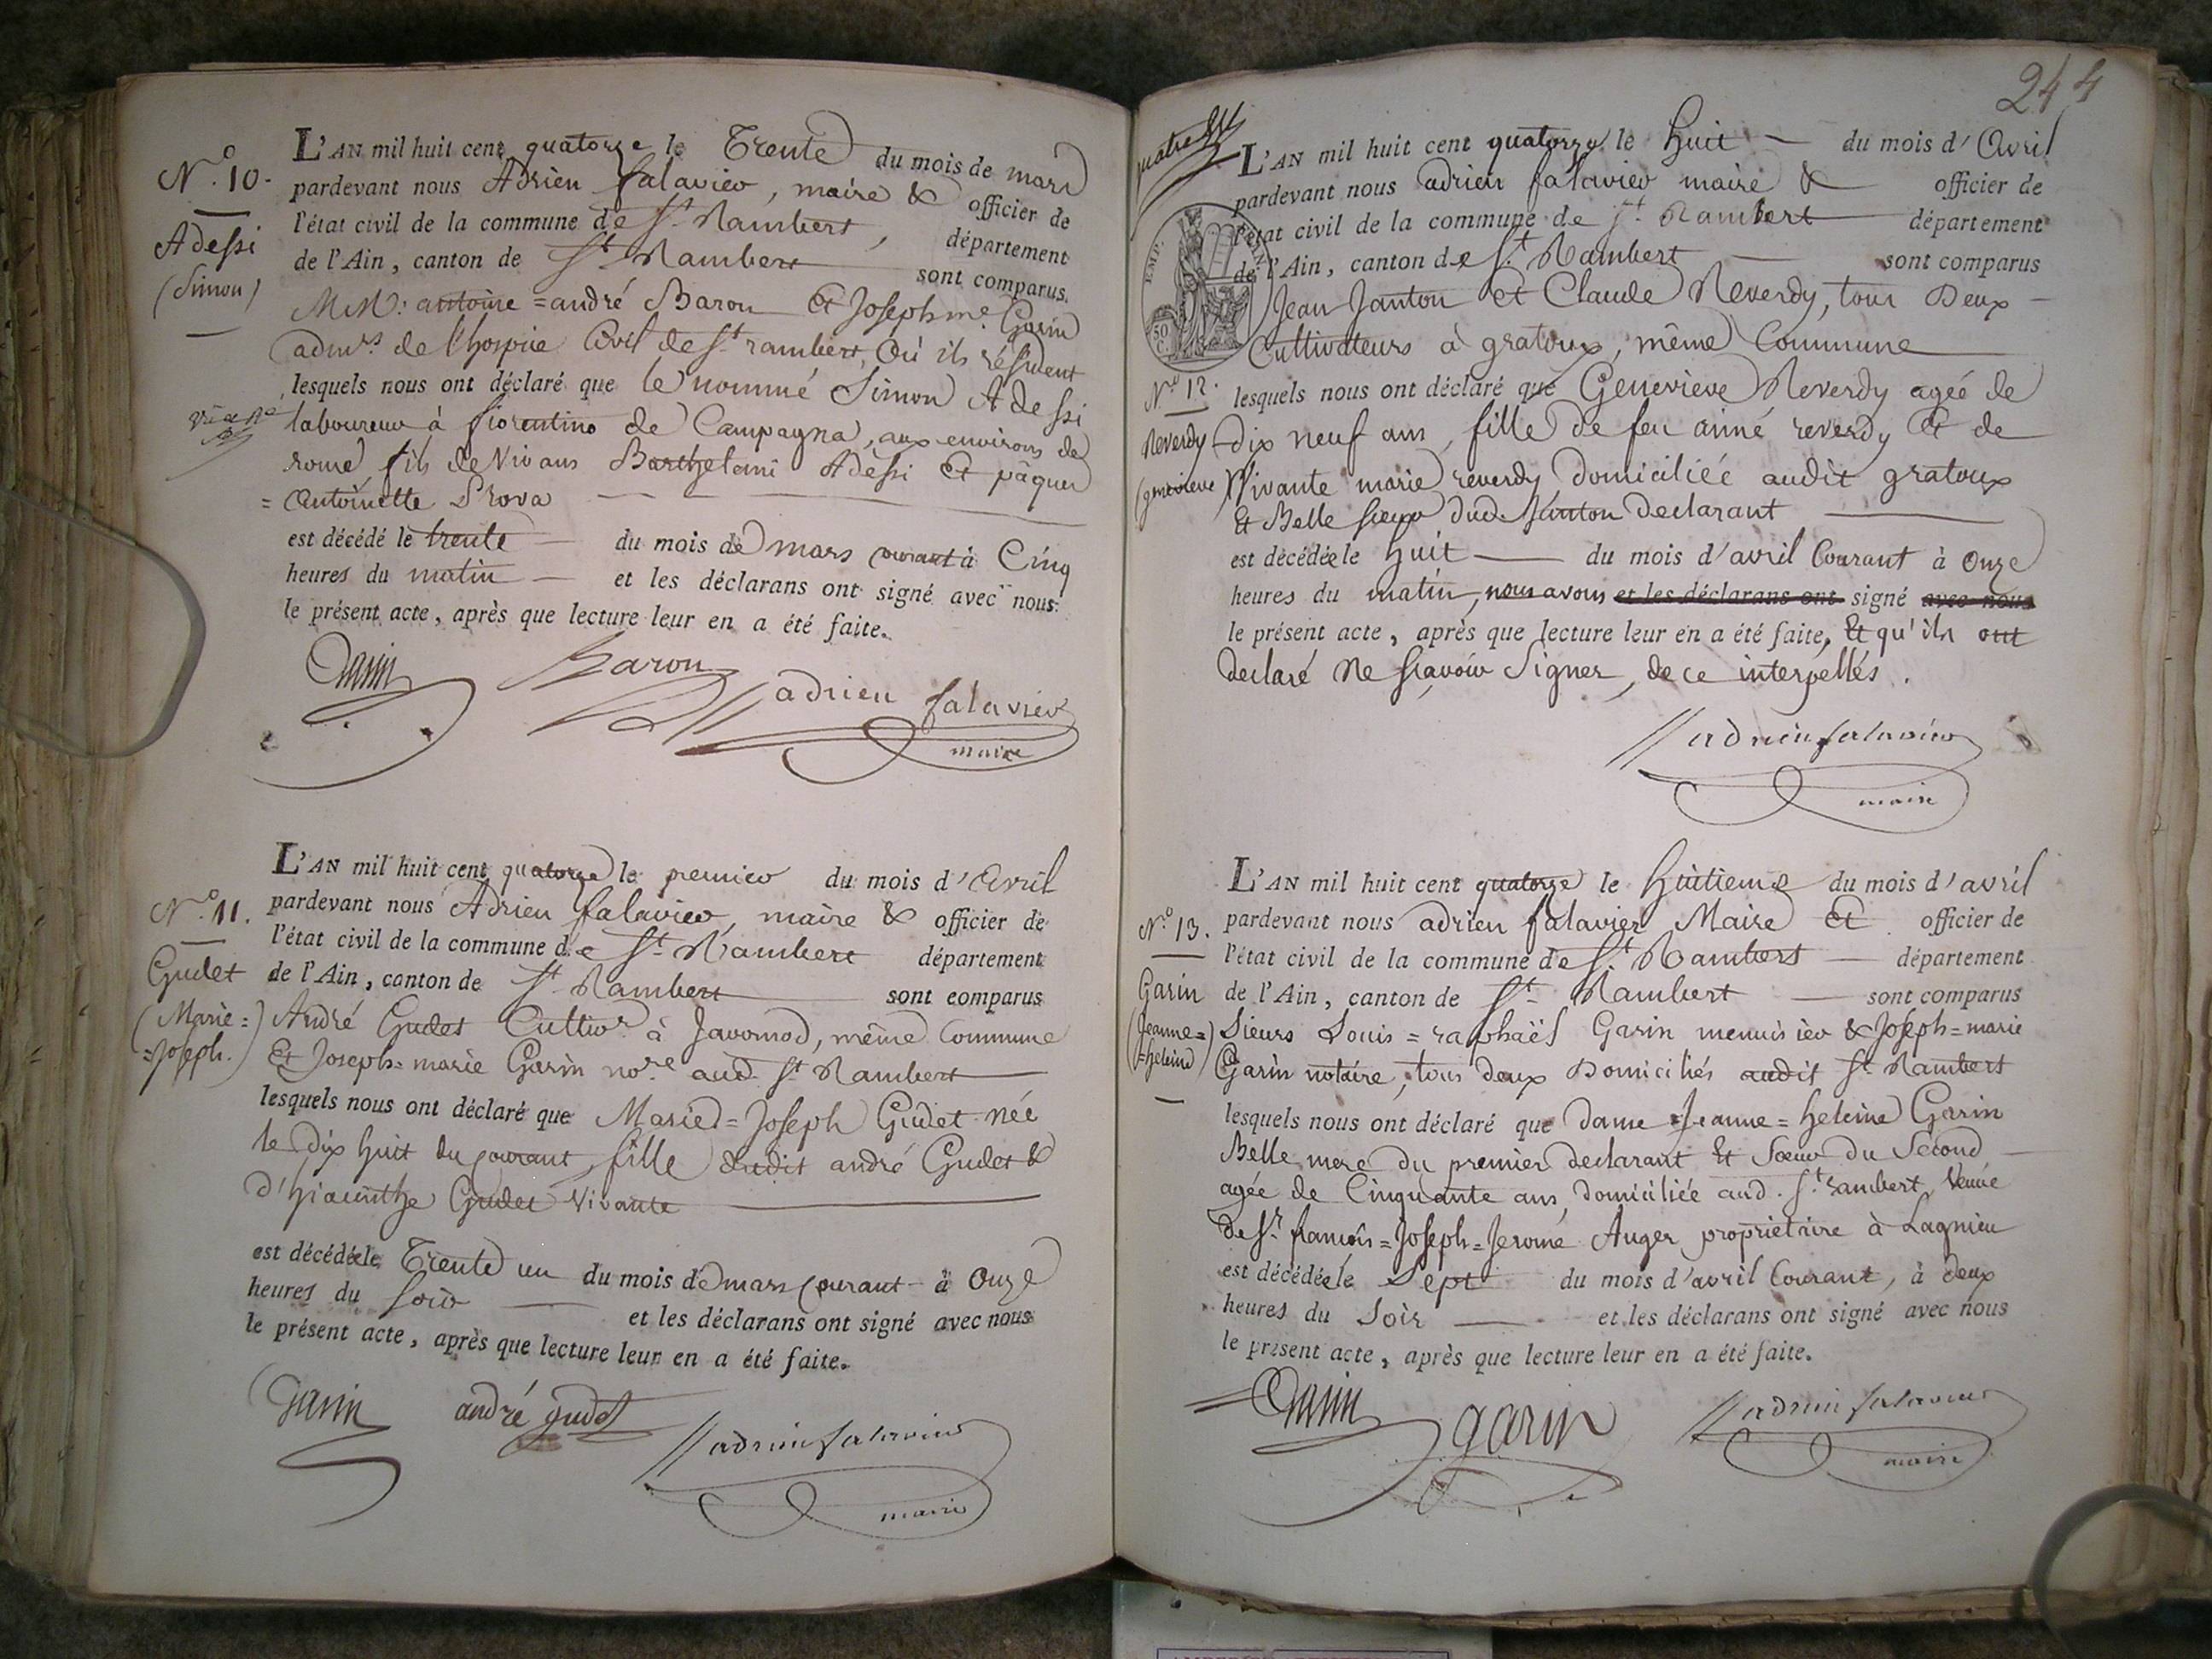 N.o 10.
Adessi
(Simon)
L'AN mil huit cent quatorze le Trente du mois de mars
pardevant nous Adrien falavier, maire & officier de
l'état civil de la commune de St. Rambert, département
de l'Ain, canton de St. Rambert sont comparus
MM: antoine = andré Baron Et Joseph me. Garin
admrs. de l'hospice Civil de St. rambert, Où ils résident
lesquels nous ont déclaré que le nommé Simon Adessi
laboureur à fiorentino de Campagna, aux environs de
rome fils de Vivans Barthelemi Adessi Et pâques
= Antoinette Prova
est décédé le trente du mois de mars courant à Cinq
heures du matin et les déclarans ont signé avec nous
le présent acte, après que lecture leur en a été faite.
Garin Baron adrien falavier
maire
N.o 11.
Gudet
(Marie=
=Joseph.)
L'AN mil huit cent quatorze le premier du mois d'Avril
pardevant nous Adrien falavier, maire & officier de
l'état civil de la commune de St. Rambert département
de l'Ain, canton de St. Rambert sont comparus
André Gudet Cultivr. à Javornod, même Commune
Et Joseph=marie Garin nore. aud. St. Rambert
lesquels nous ont déclaré que Marie=Joseph Gudet née
le Dix huit du courant, fille dudit andré Gudet &
d'hiacinthe Gudet Vivante
est décédée le Trente un du mois de mars courant à Onze
heures du soir et les déclarans ont signé avec nous
le présent acte, après que lecture leur en a été faite.
Garin andré gudet adrien falavier
maire
244
L'AN mil huit cent quatorze le huit du mois d'Avril
pardevant nous adrien falavier maire & officier de
l'état civil de la commune de St. Rambert département
de l'Ain, canton de St. Rambert sont comparus
Jean Janton Et Claude Reverdy, tous Deux
Cultivateurs à gratoux, même Commune
N.o 12.
Reverdy
(genevieve)
lesquels nous ont déclaré que Genevieve Reverdy agée de
Dix neuf ans, fille de feu aimé reverdy Et de
Vivante marie reverdy Domiciliée audit gratoux
Et Belle soeur dud. Janton Declarant
est décédée le huit du mois d'avril Courant à Onze
heures du matin, nous avons et les déclarans ont signé avec nous
le présent acte, après que lecture leur en a été faite, Et qu'ils ont
declaré Ne sçavoir Signer, de ce interpellés.
adrien falavier
maire
N.o 13.
Garin
(Jeanne=
=heleine)
L'AN mil huit cent quatorze le huitieme du mois d'avril
pardevant nous adrien falavier Maire Et officier de
l'état civil de la commune de St. Rambert département
de l'Ain, canton de St. Rambert sont comparus
Sieurs Louis=raphaël Garin menuisier & Joseph=marie
Garin notaire, tous deux Domiciliés audit St. Rambert
lesquels nous ont déclaré que Dame Jeanne=heleine Garin
Belle mere du premier declarant Et Soeur du Second
agée de Cinquante ans, domiciliée aud. St. rambert, Veuve
de Sr. françois=Joseph=Jerome Auger propriétaire à Lagnieu
est décédée le Sept du mois d'avril Courant, à deux
heures du Soir et les déclarans ont signé avec nous
le présent acte, après que lecture leur en a été faite.
Garin garin adrien falavier
maire